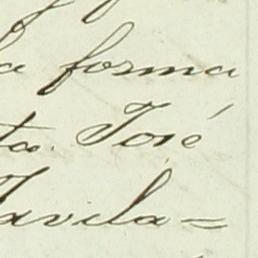 a forma
ta. José
avila=